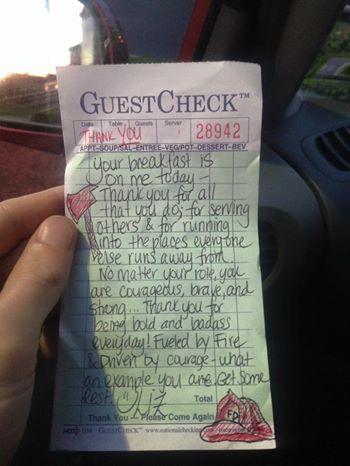 GUESTCHECK™
Date Table Guests Server
THANK YOU 28942
APPT-SOUP/SAL-ENTREE-VEG/POT-DESSERT-BEV
your breakfast is
on me today -
Thank you for all
that you do; for serving
others & for running
into the places everyone
else runs away from.
No matter your role, you
are courageous, brave, and
strong... Thank you for
being bold and badass
everyday! Fueled by Fire
& Driven by courage - what
an example you are. Get Some
Rest. Liz
Total
Thank You - Please Come Again
FD
GUESTCHECK™